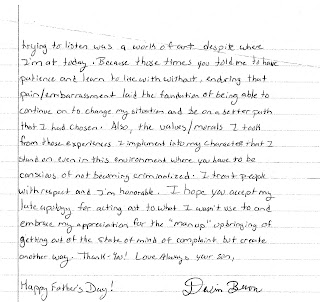 trying to listen was a work of art despite where
I'm at today. Because those times you told me to have
patience and learn to live with without, enduring that
pain/embarrassment laid the foundation of being able to
continue on to change my situation and be on a better path
that I had chosen. Also, the values/morals I took
from those experiences I implement into my character that I
stand on even in this environment where you have to be
conscious of not becoming criminalized. I treat people
with respect and I'm honorable. I hope you accept my
late apology for acting out to what I wasn't use to and
embrace my appreciation for the "man up" upbringing of
getting out of the state of mind of complaint but create
another way. Thank-You! Love Always your son,
Happy Father's Day!